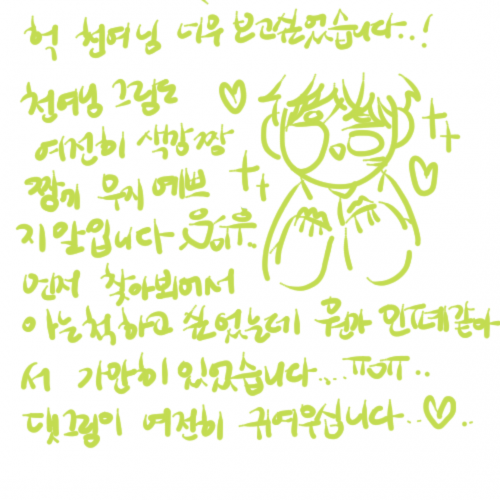 헉 천여님 너무 보고싶었습니다..!
천여님 그림도 ♡
여전히 색감짱
짱개 무지 예쁘
지 말입니다
먼저 찾아봬어서
아는척하고 싶었는데 뭔가 민폐같아
서 가만히 있었습니다... ㅠㅁㅠ..
댓그림이 여전히 귀여우십니다...♡..